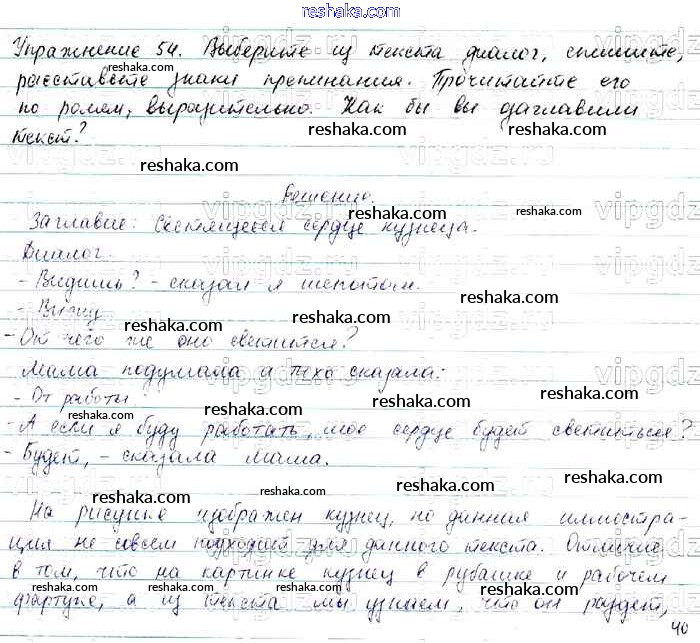 reshaka.com
Упражнение 54. Выберите из текста диалог, спишите,
расставьте знаки препинания. Прочитайте его
reshaka.com
по ролям, выразительно. Как бы вы озаглавили
reshaka.com
текст?
reshaka.com
Решение.
Заглавие: Светящееся сердце кузнеца.
reshaka.com reshaka.com
Диалог:
- Видишь? - сказал я шепотом.
reshaka.com
- Вижу
reshaka.com reshaka.com
- От чего же оно светится?
Мама подумала и тихо сказала:
- От работы
reshaka.com reshaka.com reshaka.com
- А если я буду работать, мое сердце будет светиться?
- Будет, - сказала мама.
reshaka.com reshaka.com
На рисунке изображен кузнец, но данная иллюстра-
reshaka.com
ция не совсем подходит для данного текста. Отличие
reshaka.com
в том, что на картинке кузнец в рубашке и рабочем
reshaka.com reshaka.com reshaka.com
фартуке, а из текста мы узнаем, что он раздет,
40
vipgdz.ru